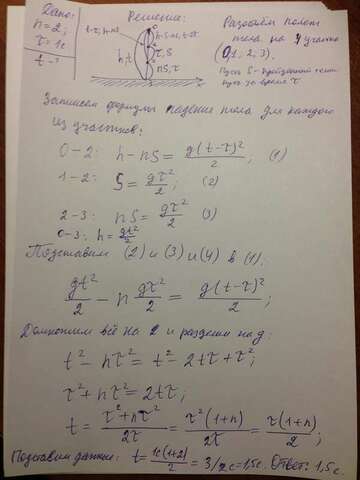 Дано:
n=2;
τ=1c
t-?
Решение:
t-τ, h-nS
h
h-nS, t-τ
τ, S
nS, τ
Разобьём полет
тела на 4 участка
(0, 1, 2, 3).
Пусть S - пройденный телом
путь за время τ
Запишем формулы падение тела для каждого
из участков:
0-2: h-nS = g(t-τ)²/2; (1)
1-2: S = gτ²/2; (2)
2-3: nS = gτ²/2 (3)
0-3: h = gt²/2
Подставим (2) и (3) и (4) в (1):
gt²/2 - n gτ²/2 = g(t-τ)²/2;
Домножим всё на 2 и разделим на g:
t² - nτ² = t² - 2tτ + τ²;
τ² + nτ² = 2tτ;
t = τ²+nτ²/2τ = τ²(1+n)/2τ = τ(1+n)/2;
Подставим данные: t = 1c(1+2)/2 = 3/2c = 1,5c. Ответ: 1,5c.